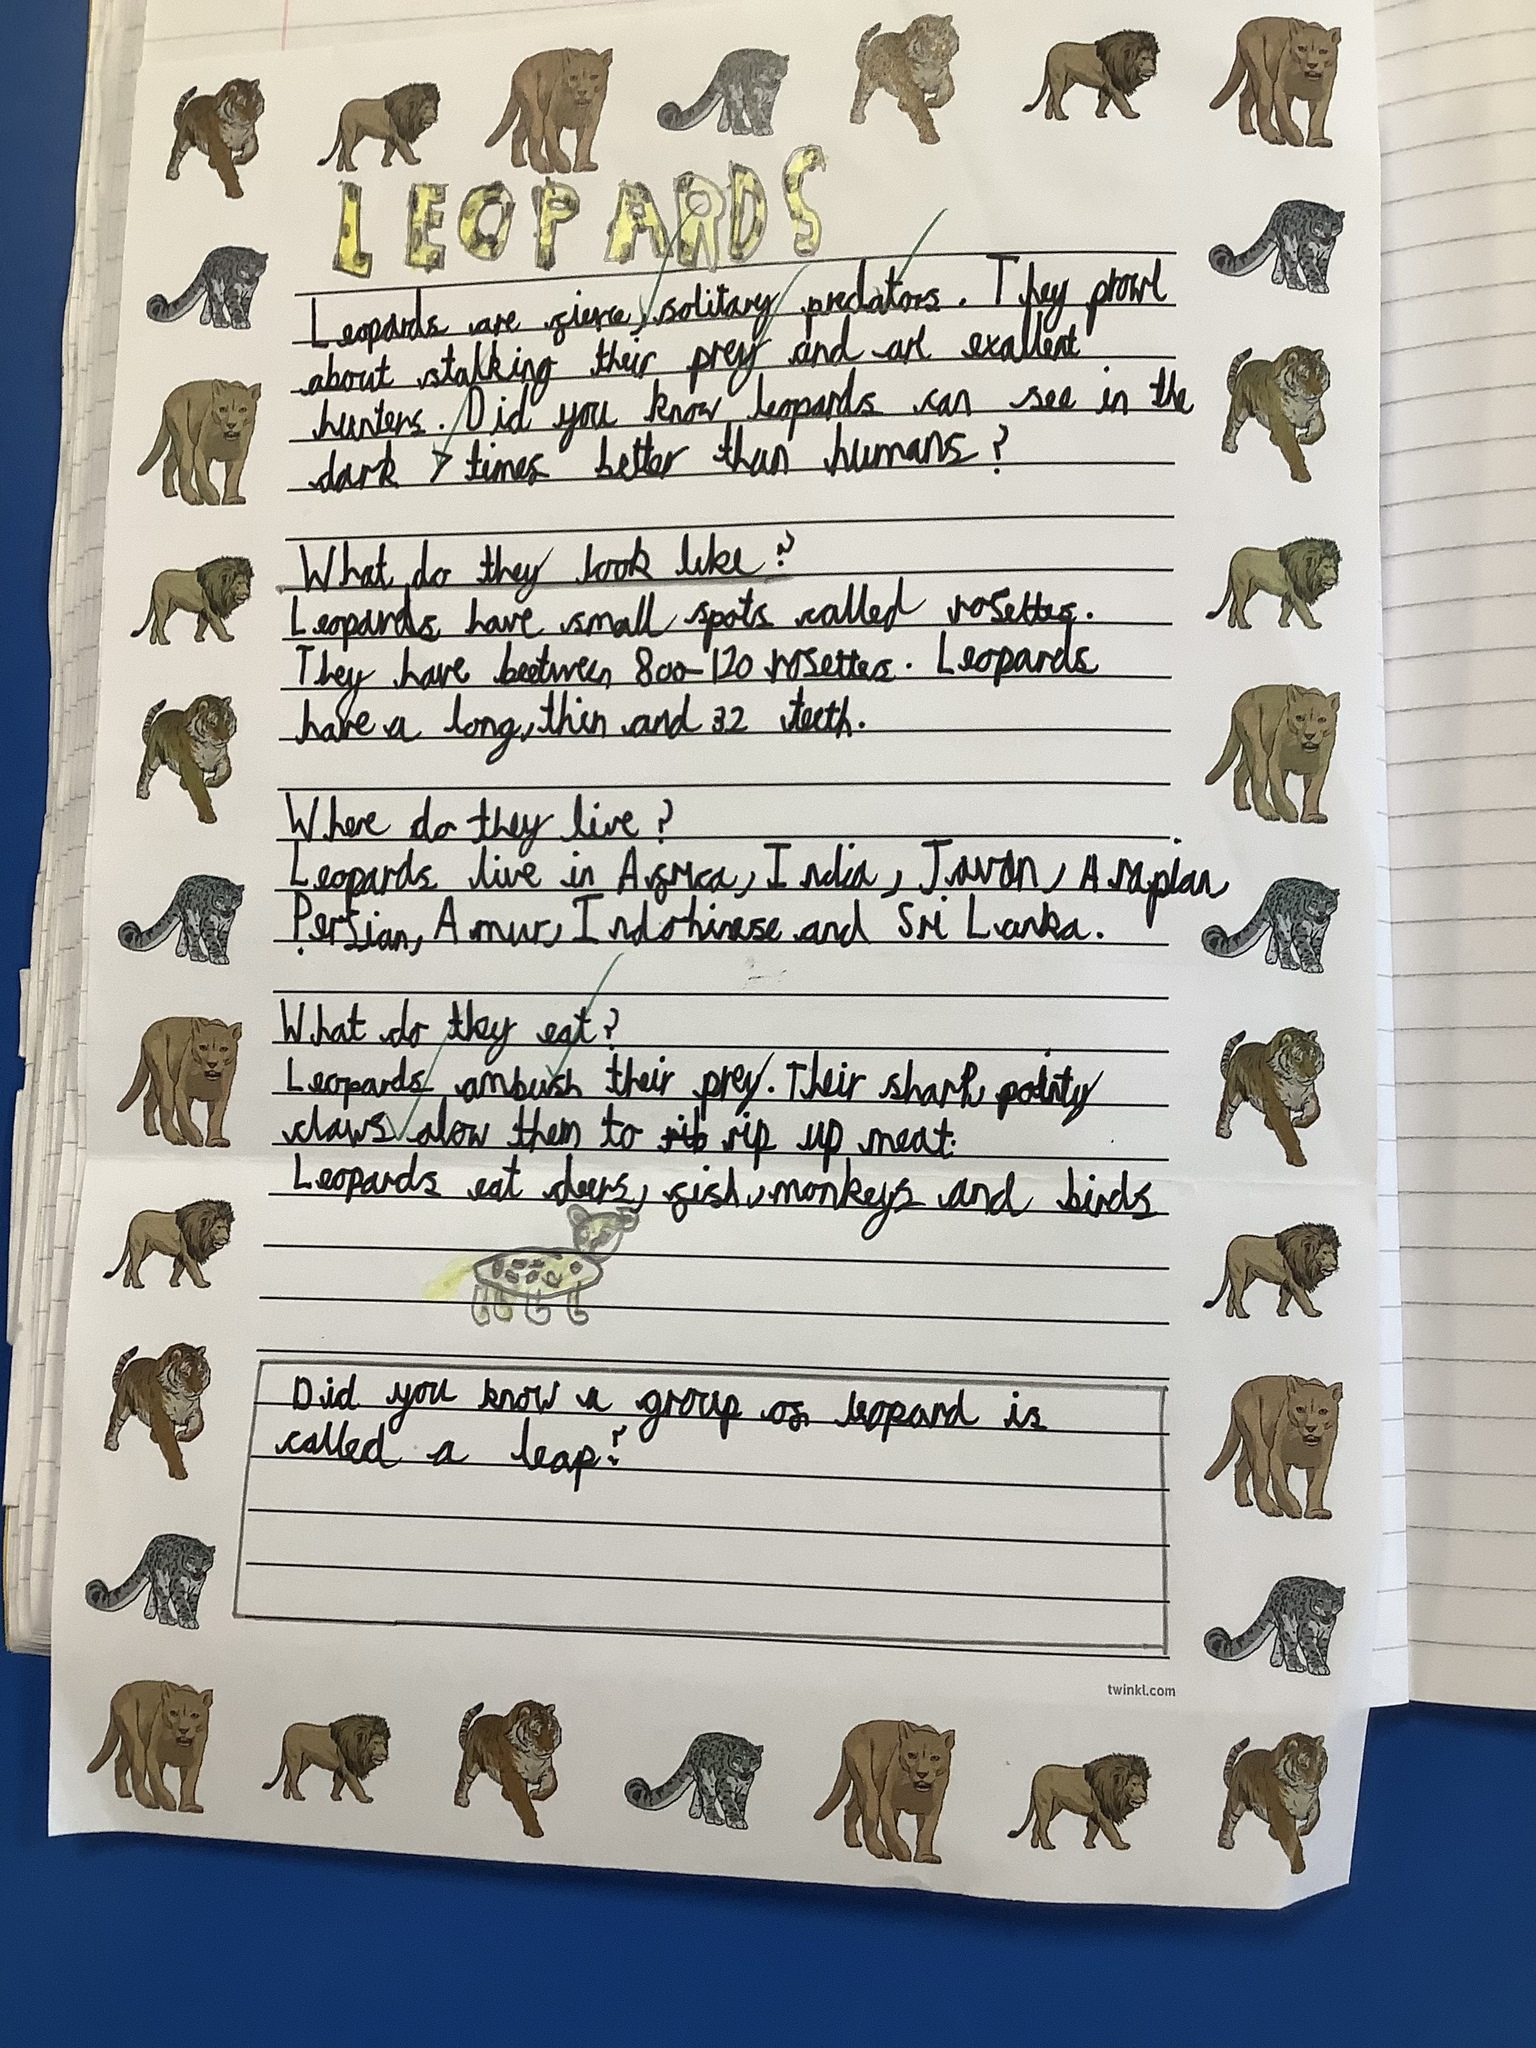 LEOPARDS
Leopards are fierce, solitary predators. They prowl
about stalking their prey and are exallent
hunters. Did you know leopards can see in the
dark 7 times better than humans?
What do they look like?
Leopards have small spots called rosettes.
They have beetween 800-120 rosettes. Leopards
have a long, thin and 32 teeth.
Where do they live?
Leopards live in Africa, India, Javan, Arapian,
Persian, Amur, Indohinese and Sri Lanka.
What do they eat?
Leopards ambush their prey. Their sharp, pointy
claws alow them to rib rip up meat.
Leopards eat deers, fish, monkeys and birds
Did you know a group of leopard is
called a leap?
twinkl.com